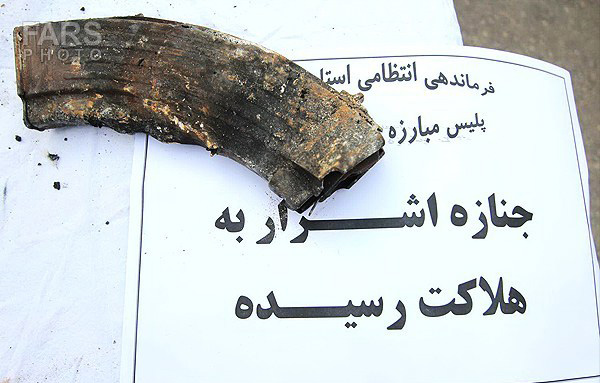 FARS
PHOTO
فرماندهی انتظامی
پلیس مبارزه
جنازه اشـــــرار به
هلاکت رسیـــده